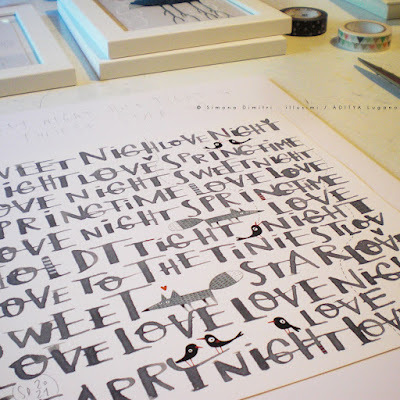 © Simona Dimitri . Illusimi / ADITYA Lugano
WEET NIGH LOVE NIGHT
NIGHT LOVE SPRINGTIME
LOVE NIGHT SWEET NIGHT
SPRINGTIME LOVE LOVE
LOVE NIGHT SPRINGTIME
LOVE
HOLD IT TIGHT NIGHT
LOVE TO THE TINIEST LOV
SWEET STAR LOVE
LOVE LOVE LOVE NIGH
LOVE
ARRY NIGHT LOV